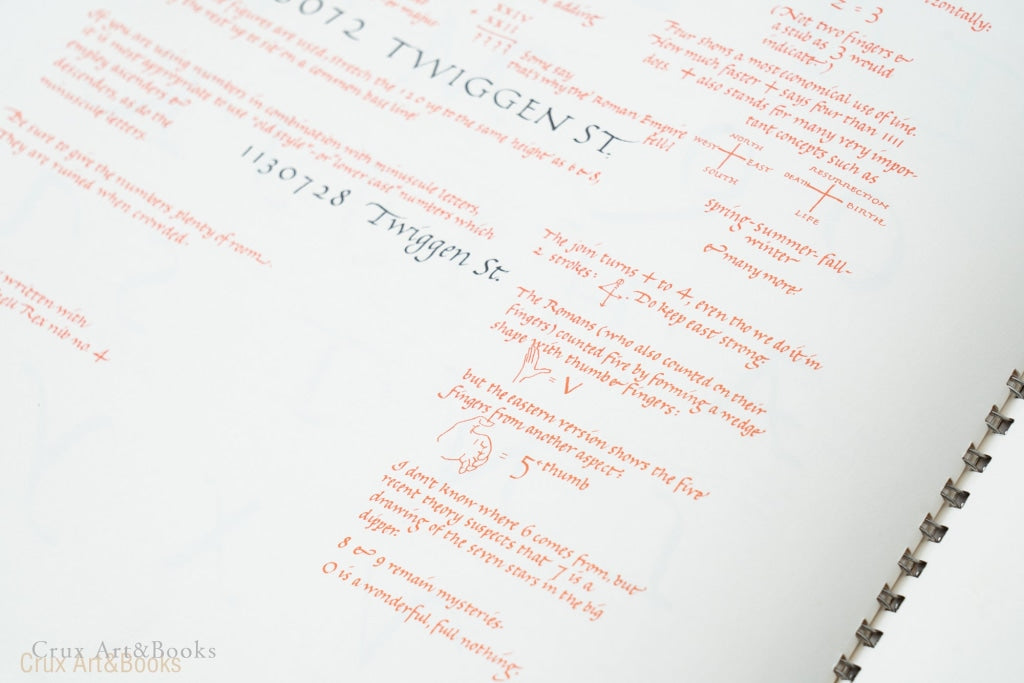 3072 TWIGGEN ST.
figures are used, stretch the 1 2 0 up to the same height as 6 & 8,
the rest up to sit on a common base line
If you are using numbers in combination with minuscule letters,
it is most appropriate to use "old style" or "lower case" numbers which
employ ascenders &
descenders, as do the
minuscule letters.
1130728 Twiggen St.
Be sure to give the numbers plenty of room.
They are ruined when crowded.
written with
Rex nib no. 4
adding
XXIV
+ XXII
????
Some say
that's why the Roman Empire
fell!
zontally:
= 3
(Not two fingers &
a stub as 3 would
indicate)
Four shows a most economical use of line.
How much faster + says four than 1111
does. + also stands for many very impor-
tant concepts such as
NORTH
WEST EAST
SOUTH
RESURRECTION
DEATH BIRTH
LIFE
spring-summer-fall-
winter
& many more.
The join turns + to 4, even tho we do it in
2 strokes: 4. Do keep east strong
The Romans (who also counted on their
fingers) counted five by forming a wedge
shape with thumb & fingers:
= V
but the eastern version shows the five
fingers from another aspect:
= 5 thumb
I don't know where 6 comes from, but
recent theory suspects that 7 is a
drawing of the seven stars in the big
dipper.
8 & 9 remain mysteries.
0 is a wonderful, full nothing.
Crux Art&Books
Crux Art&Books